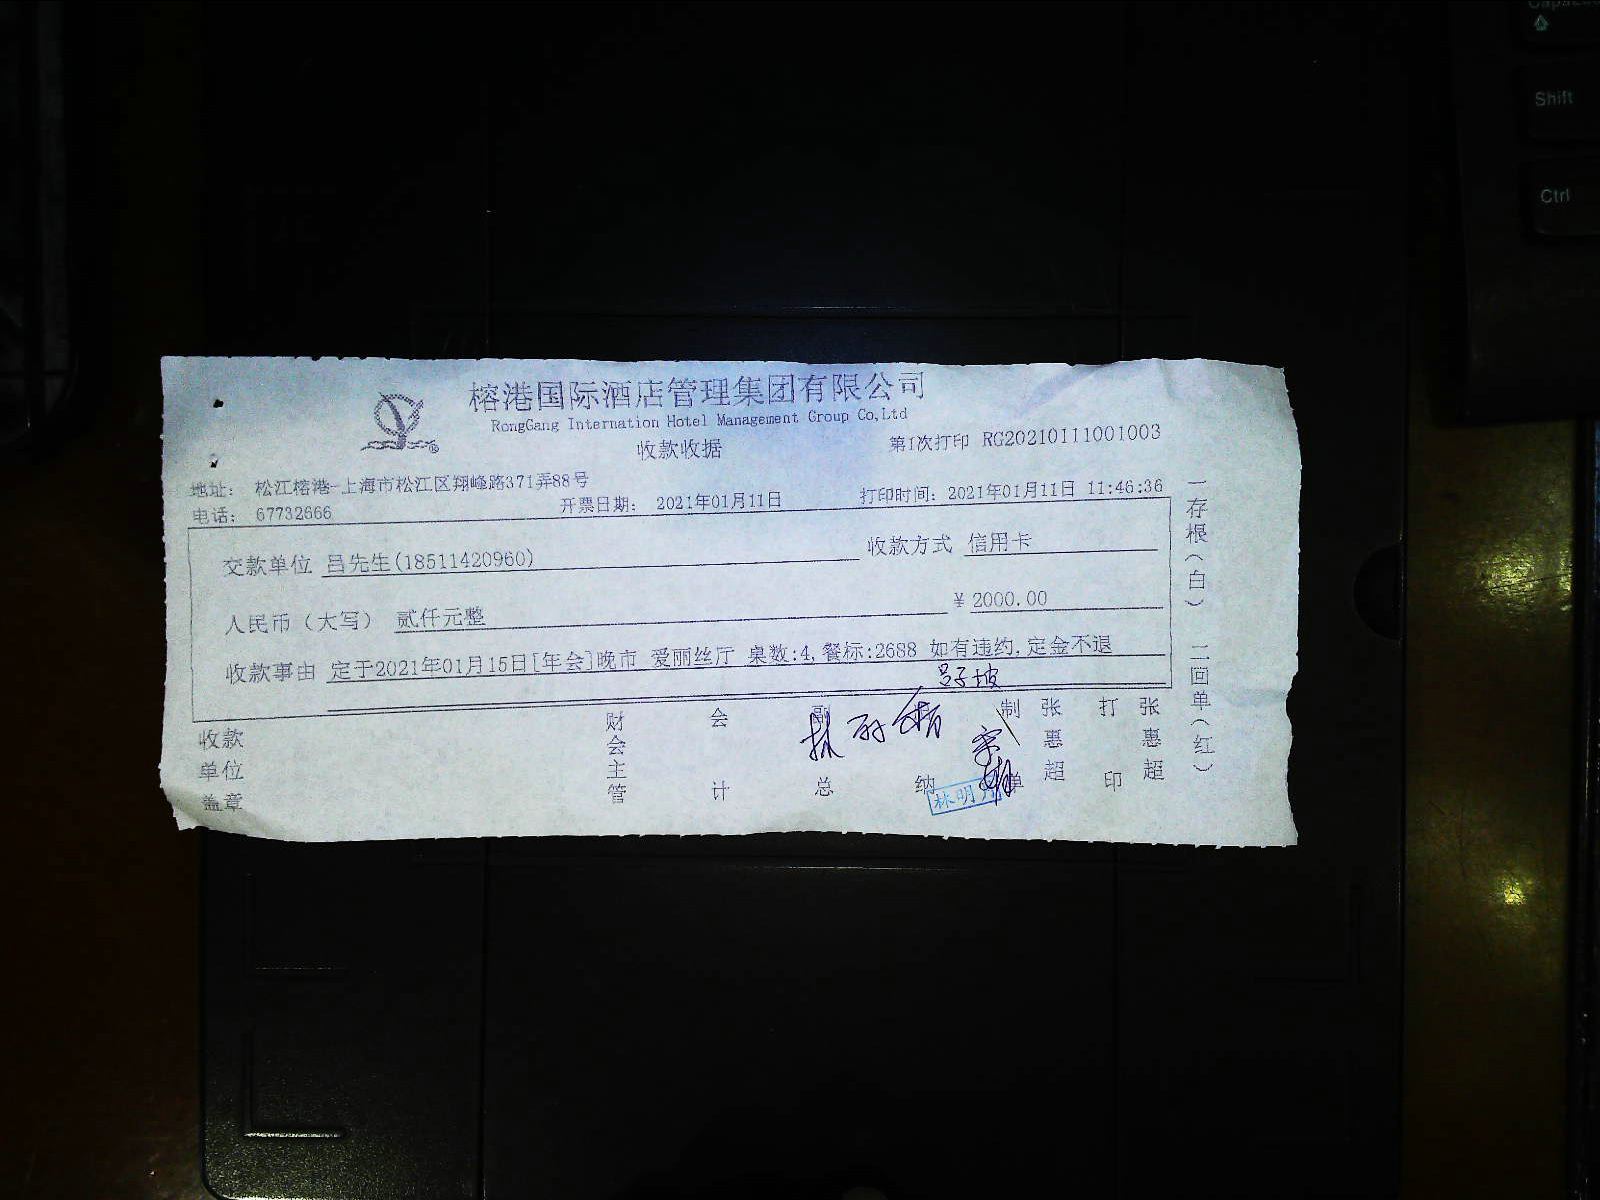 Shift
Ctrl
榕港国际酒店管理集团有限公司
RongGang Internation Hotel Management Group Co,Ltd
收款收据
第1次打印 RG20210111001003
地址: 松江榕港-上海市松江区翔峰路371弄88号
电话: 67732666
开票日期: 2021年01月11日
打印时间: 2021年01月11日 11:46:36
交款单位 吕先生(18511420960)
收款方式 信用卡
人民币（大写） 贰仟元整
¥ 2000.00
收款事由 定于2021年01月15日[年会]晚市 爱丽丝厅 桌数:4,餐标:2688 如有违约,定金不退
收款单位盖章
财会主管
会计
副总
纳
制单
张惠超
打印
张惠超
林明
一存根（白） 二回单（红）